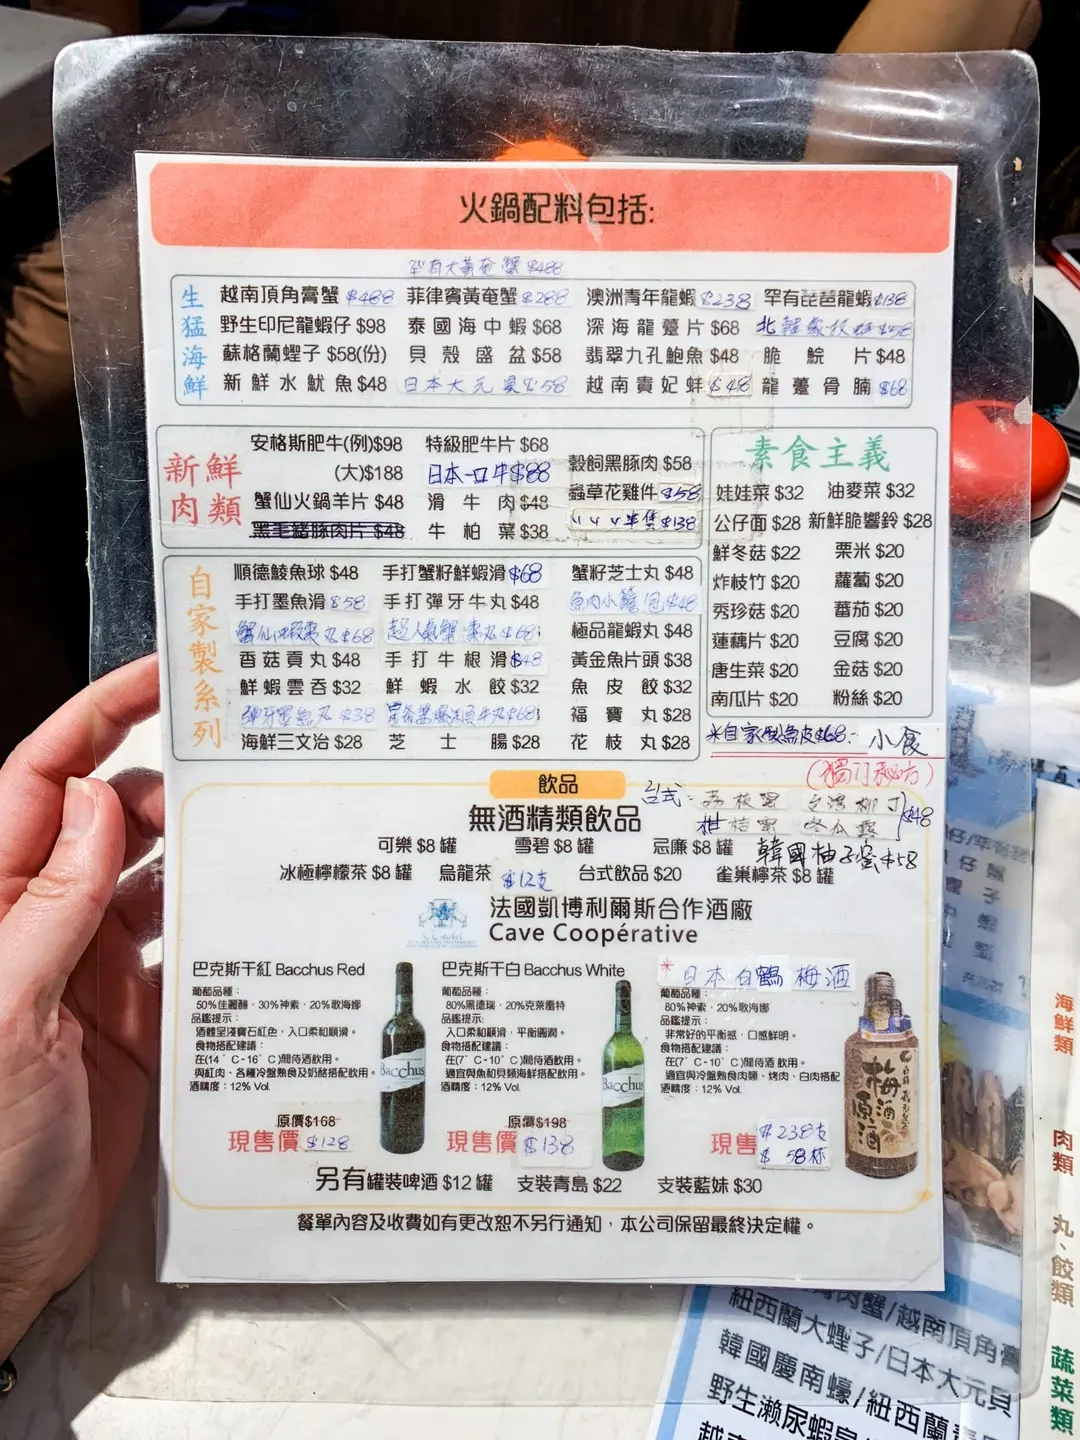 火鍋配料包括:
罕有大黃奄蟹 $488
生猛海鮮
越南頂角膏蟹 $488 菲律賓黃奄蟹 $288 澳洲青年龍蝦 $238 罕有琵琶龍蝦 $138
野生印尼龍蝦仔 $98 泰國海中蝦 $68 深海龍躉片 $68 北
蘇格蘭蟶子 $58(份) 貝殼盛盆 $58 翡翠九孔鮑魚 $48 脆鯇片 $48
新鮮水魷魚 $48 日本大元貝 $58 越南貴妃蚌 $48 龍躉骨腩 $68
新鮮肉類
安格斯肥牛(例)$98 特級肥牛片 $68
(大)$188 日本一口牛 $88 穀飼黑豚肉 $58
蟹仙火鍋羊片 $48 滑牛肉 $48 蟲草花雞件 $58
黑毛豬豚肉片 $48 牛柏葉 $38 半隻 $138
素食主義
娃娃菜 $32 油麥菜 $32
公仔面 $28 新鮮脆響鈴 $28
鮮冬菇 $22 栗米 $20
炸枝竹 $20 蘿蔔 $20
秀珍菇 $20 番茄 $20
蓮藕片 $20 豆腐 $20
唐生菜 $20 金菇 $20
南瓜片 $20 粉絲 $20
自家製系列
順德鯪魚球 $48 手打蟹籽鮮蝦滑 $68 蟹籽芝士丸 $48
手打墨魚滑 $58 手打彈牙牛丸 $48 魚肉小籠包 $48
蟹仙 $68 超人氣蟹棗丸 $68 極品龍蝦丸 $48
香菇貢丸 $48 手打牛根滑 $48 黃金魚片頭 $38
鮮蝦雲吞 $32 鮮蝦水餃 $32 魚皮餃 $32
彈牙墨魚丸 $38 牛丸 $68 福寶丸 $28
海鮮三文治 $28 芝士腸 $28 花枝丸 $28
*自家製魚皮 $68. 小食
(獨門秘方)
飲品
台式: 荔枝蜜
柑桔蜜 冬瓜露 $48
無酒精類飲品
可樂 $8 罐 雪碧 $8 罐 忌廉 $8 罐 韓國柚子蜜 $58
冰極檸檬茶 $8 罐 烏龍茶 $12支 台式飲品 $20 雀巢檸茶 $8 罐
法國凱博利爾斯合作酒廠
Cave Coopérative
巴克斯干紅 Bacchus Red
葡萄品種：
50%佳麗釀，30%神索，20%歌海娜
品鑑提示：
酒體呈淺寶石紅色，入口柔和順滑。
食物搭配建議：
在(14°C-16°C)間侍酒飲用。
與紅肉、各種冷盤熟食及奶酪搭配飲用。
酒精度：12% Vol.
原價$168
現售價 $128
Bacchus
巴克斯干白 Bacchus White
葡萄品種：
80%黑德瑞，20%克萊雷特
品鑑提示：
入口柔和順滑，平衡圓潤。
食物搭配建議：
在(7°C-10°C)間侍酒飲用。
適宜與魚和貝類海鮮搭配飲用。
酒精度：12% Vol.
原價$198
現售價 $138
Bacchus
*日本白鶴梅酒
葡萄品種：
80%神索，20%歌海娜
品鑑提示：
非常好的平衡感，口感鮮明。
食物搭配建議：
在(7°C-10°C)間侍酒飲用。
適宜與冷盤熟食肉類、烤肉、白肉搭配
酒精度：12% Vol.
現售 $238支
$58杯
梅酒原酒
另有罐裝啤酒 $12 罐 支裝青島 $22 支裝藍妹 $30
餐單內容及收費如有更改恕不另行通知，本公司保留最終決定權。
海鮮類
肉類
丸、餃類
蔬菜類
肉蟹/越南頂角膏
紐西蘭大蟶子/日本大元貝
韓國慶南蠔/紐西蘭
野生瀨尿蝦
越